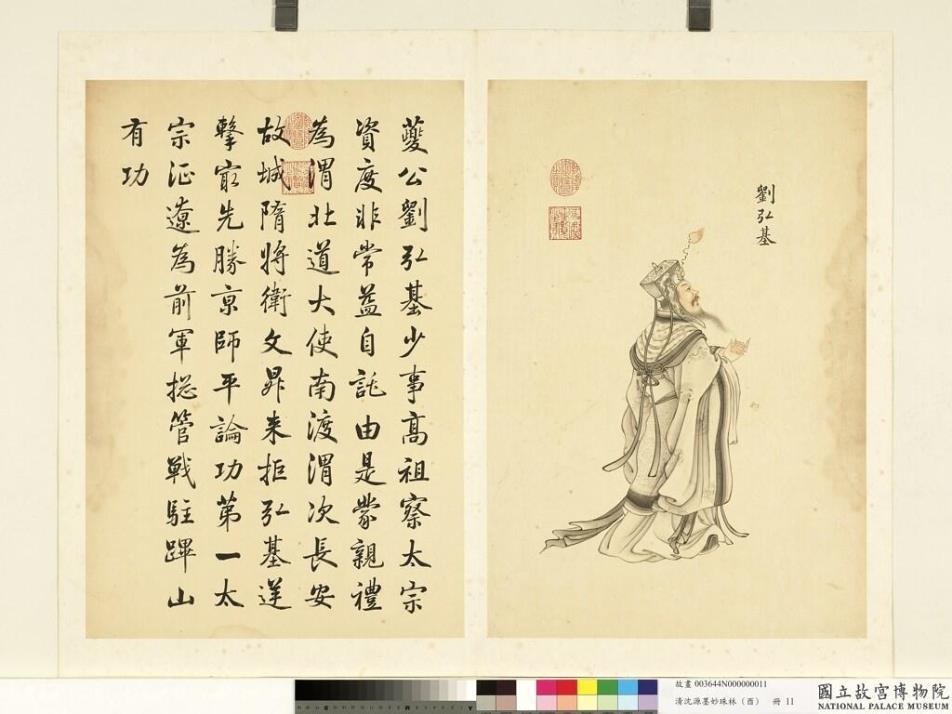 劉弘基
夔公劉弘基少事高祖察太宗
資度非常益自託由是蒙親禮
為渭北道大使南渡渭次長安
故城隋將衛文昇来拒弘基逆
擊寂先勝京師平論功第一太
宗征遼為前軍捴管戰駐蹕山
有功
故畫 003644N000000011
清沈源墨妙珠林(酉) 冊 11
國立故宮博物院
NATIONAL PALACE MUSEUM